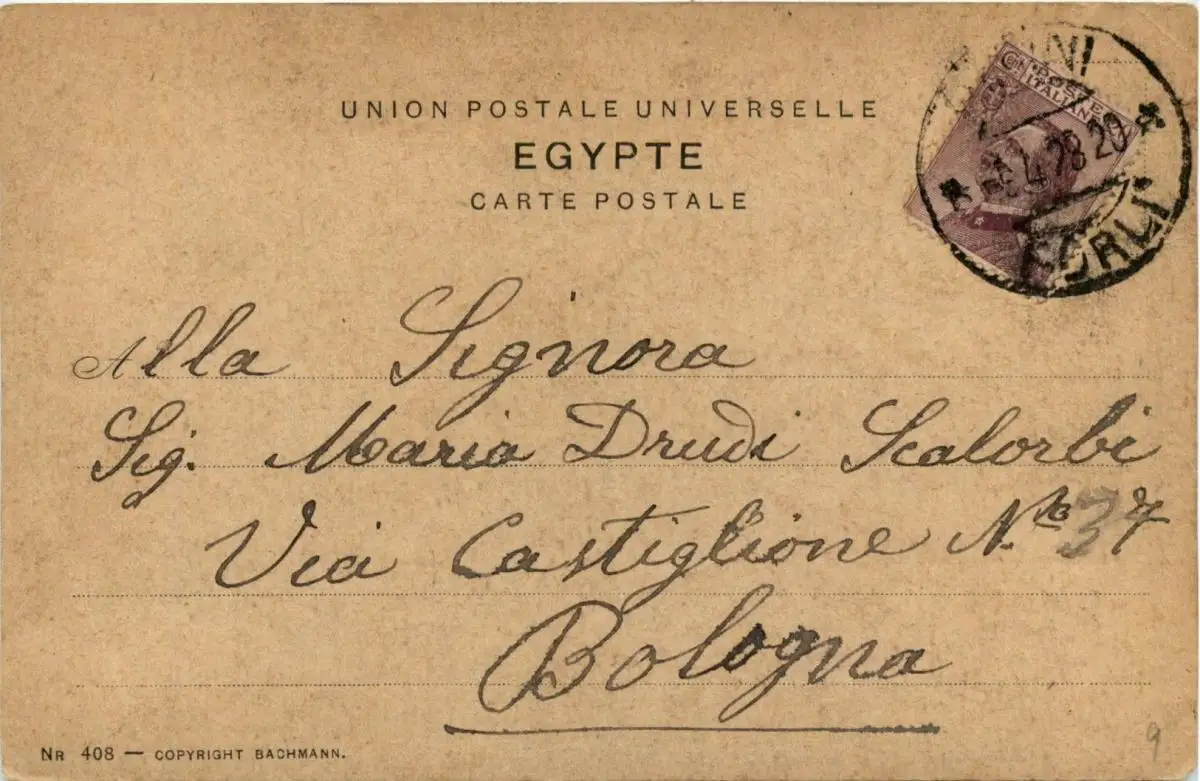 UNION POSTALE UNIVERSELLE
EGYPTE
CARTE POSTALE
POSTE
ITALIANE
4 28 20
FORLI
Alla Signora
Sig. Maria Drudi Scalorbi
Via Castiglione No 37
Bologna
NR 408 — COPYRIGHT BACHMANN.
9